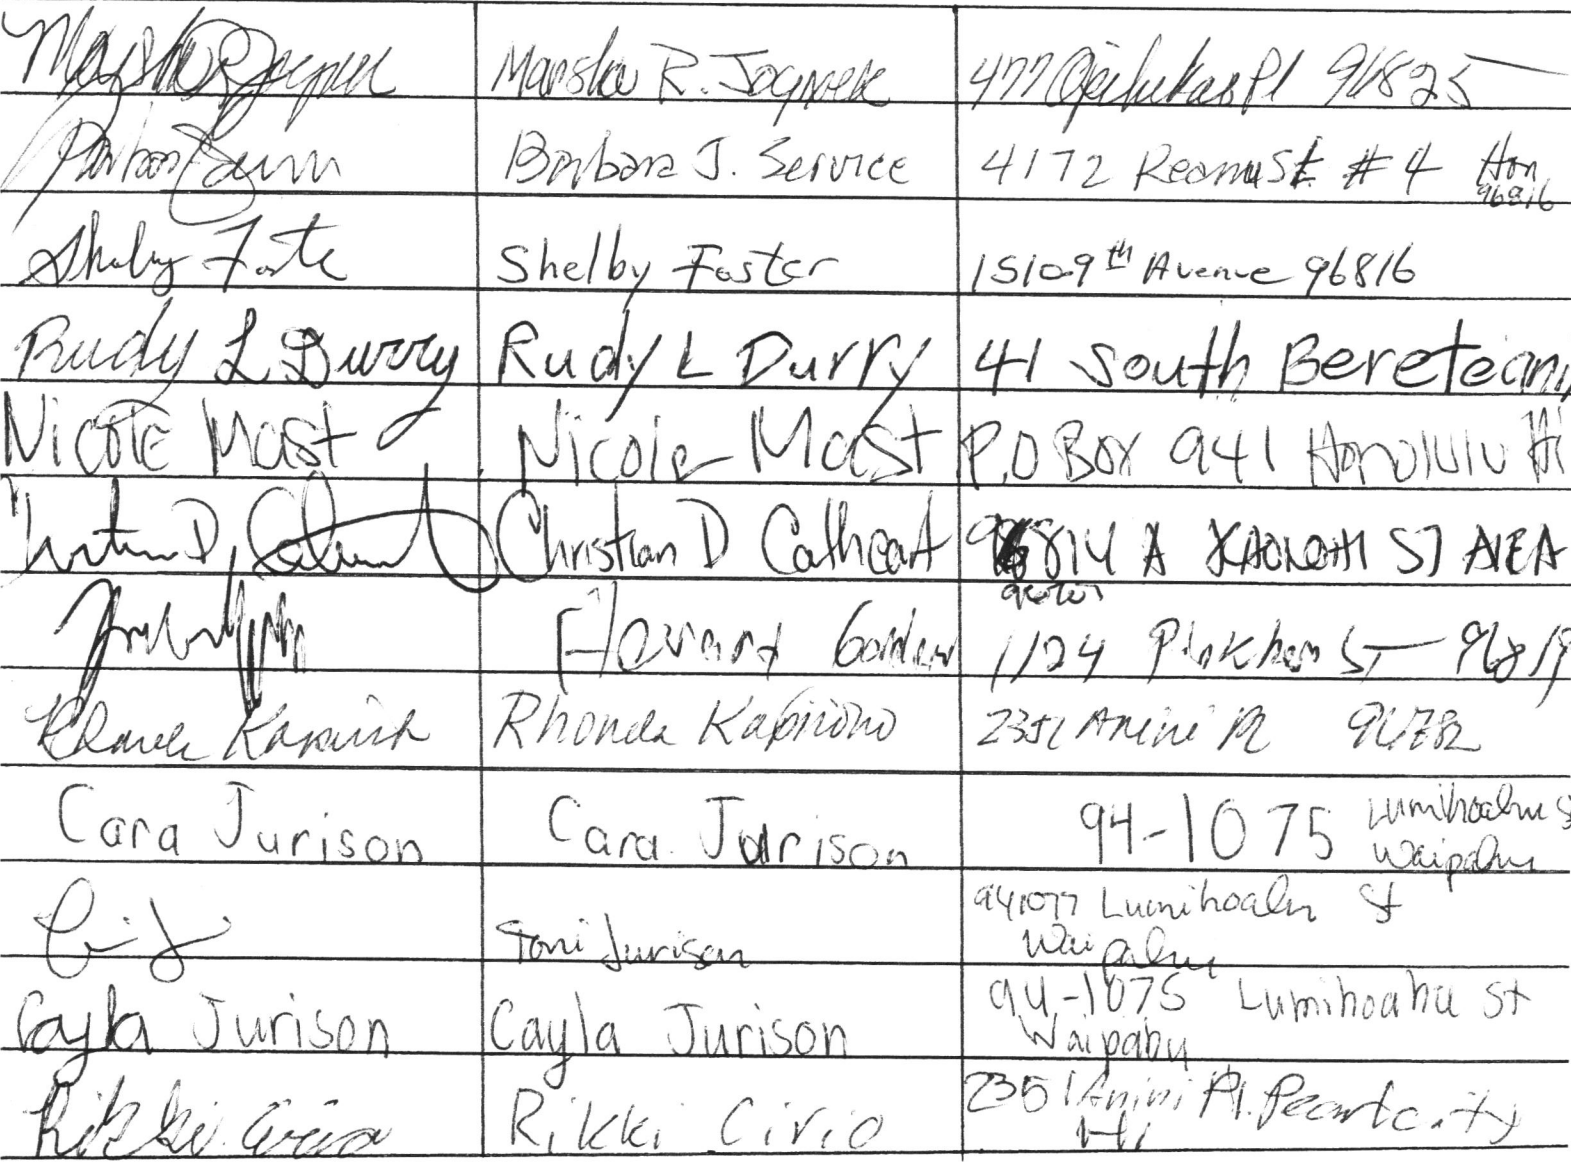 Marsha R. Joyner Marsha R. Joyner 477 Pl 96825
Barbara J. Service 4172 Keanu St. #4 Hon
96816
Shelby Foster Shelby Foster 1510 9th Avenue 96816
Rudy L Durry Rudy L Durry 41 South Bereteani
Nicole Mast Nicole Mast P.O Box 941 Honolulu Hi
Christian D Cathcart A KAONOHI ST AIEA
1124 St 96819
Rhonda 2351 Anini Pl 96782
Cara Jurison Cara Jurison 94-1075 Lumihoahu St
Waipahu
Toni Jurison 941077 Lumihoahu St
Waipahu
Cayla Jurison Cayla Jurison 94-1075 Lumihoahu St
Waipahu
Rikki Cirio Rikki Cirio 2351 Anini Pl. Pearl city
Hi